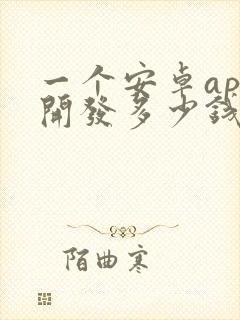 一个安卓ap
開發多少錢
陌曲寒